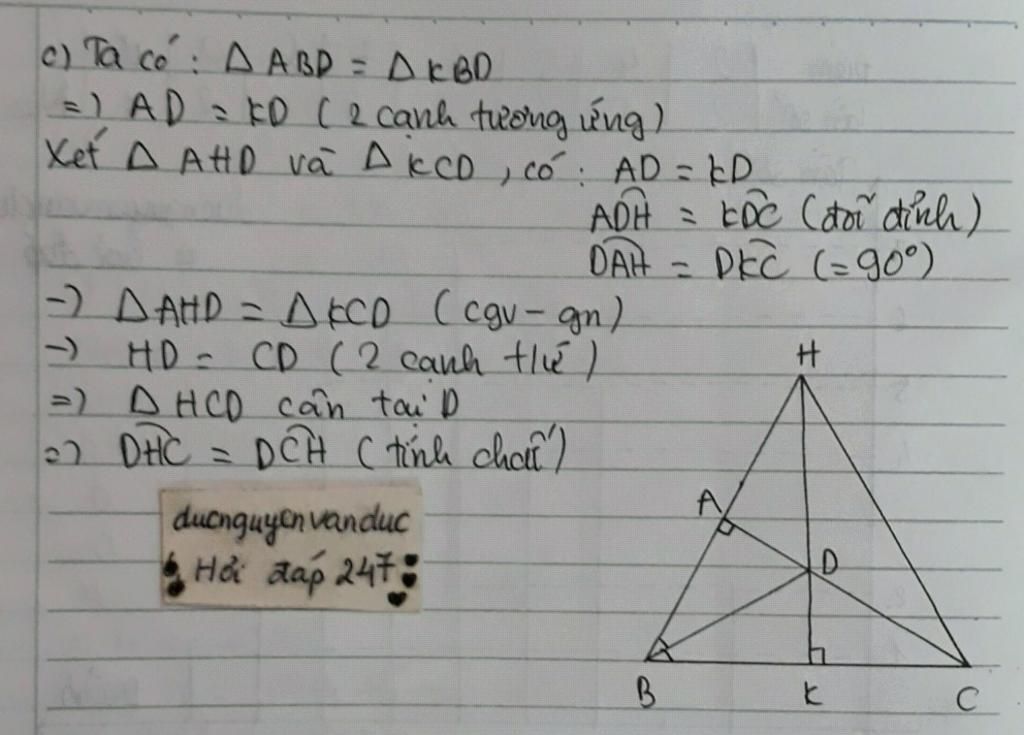 c) Ta có: Δ ABD = Δ KBD
=) AD = KD (2 cạnh tương ứng)
Xét Δ AHD và Δ KCD, có: AD = KD
ADH = KDC (đối đỉnh)
DAH = DKC (=90°)
-) ΔAHD = ΔKCD (cgv-gn)
-) HD = CD (2 cạnh t/ư)
=) ΔHCD cân tại D
=) DHC = DCH (tính chất)
ducnguyenvanduc
Hỏi đáp 247
H
A
D
B
K
C